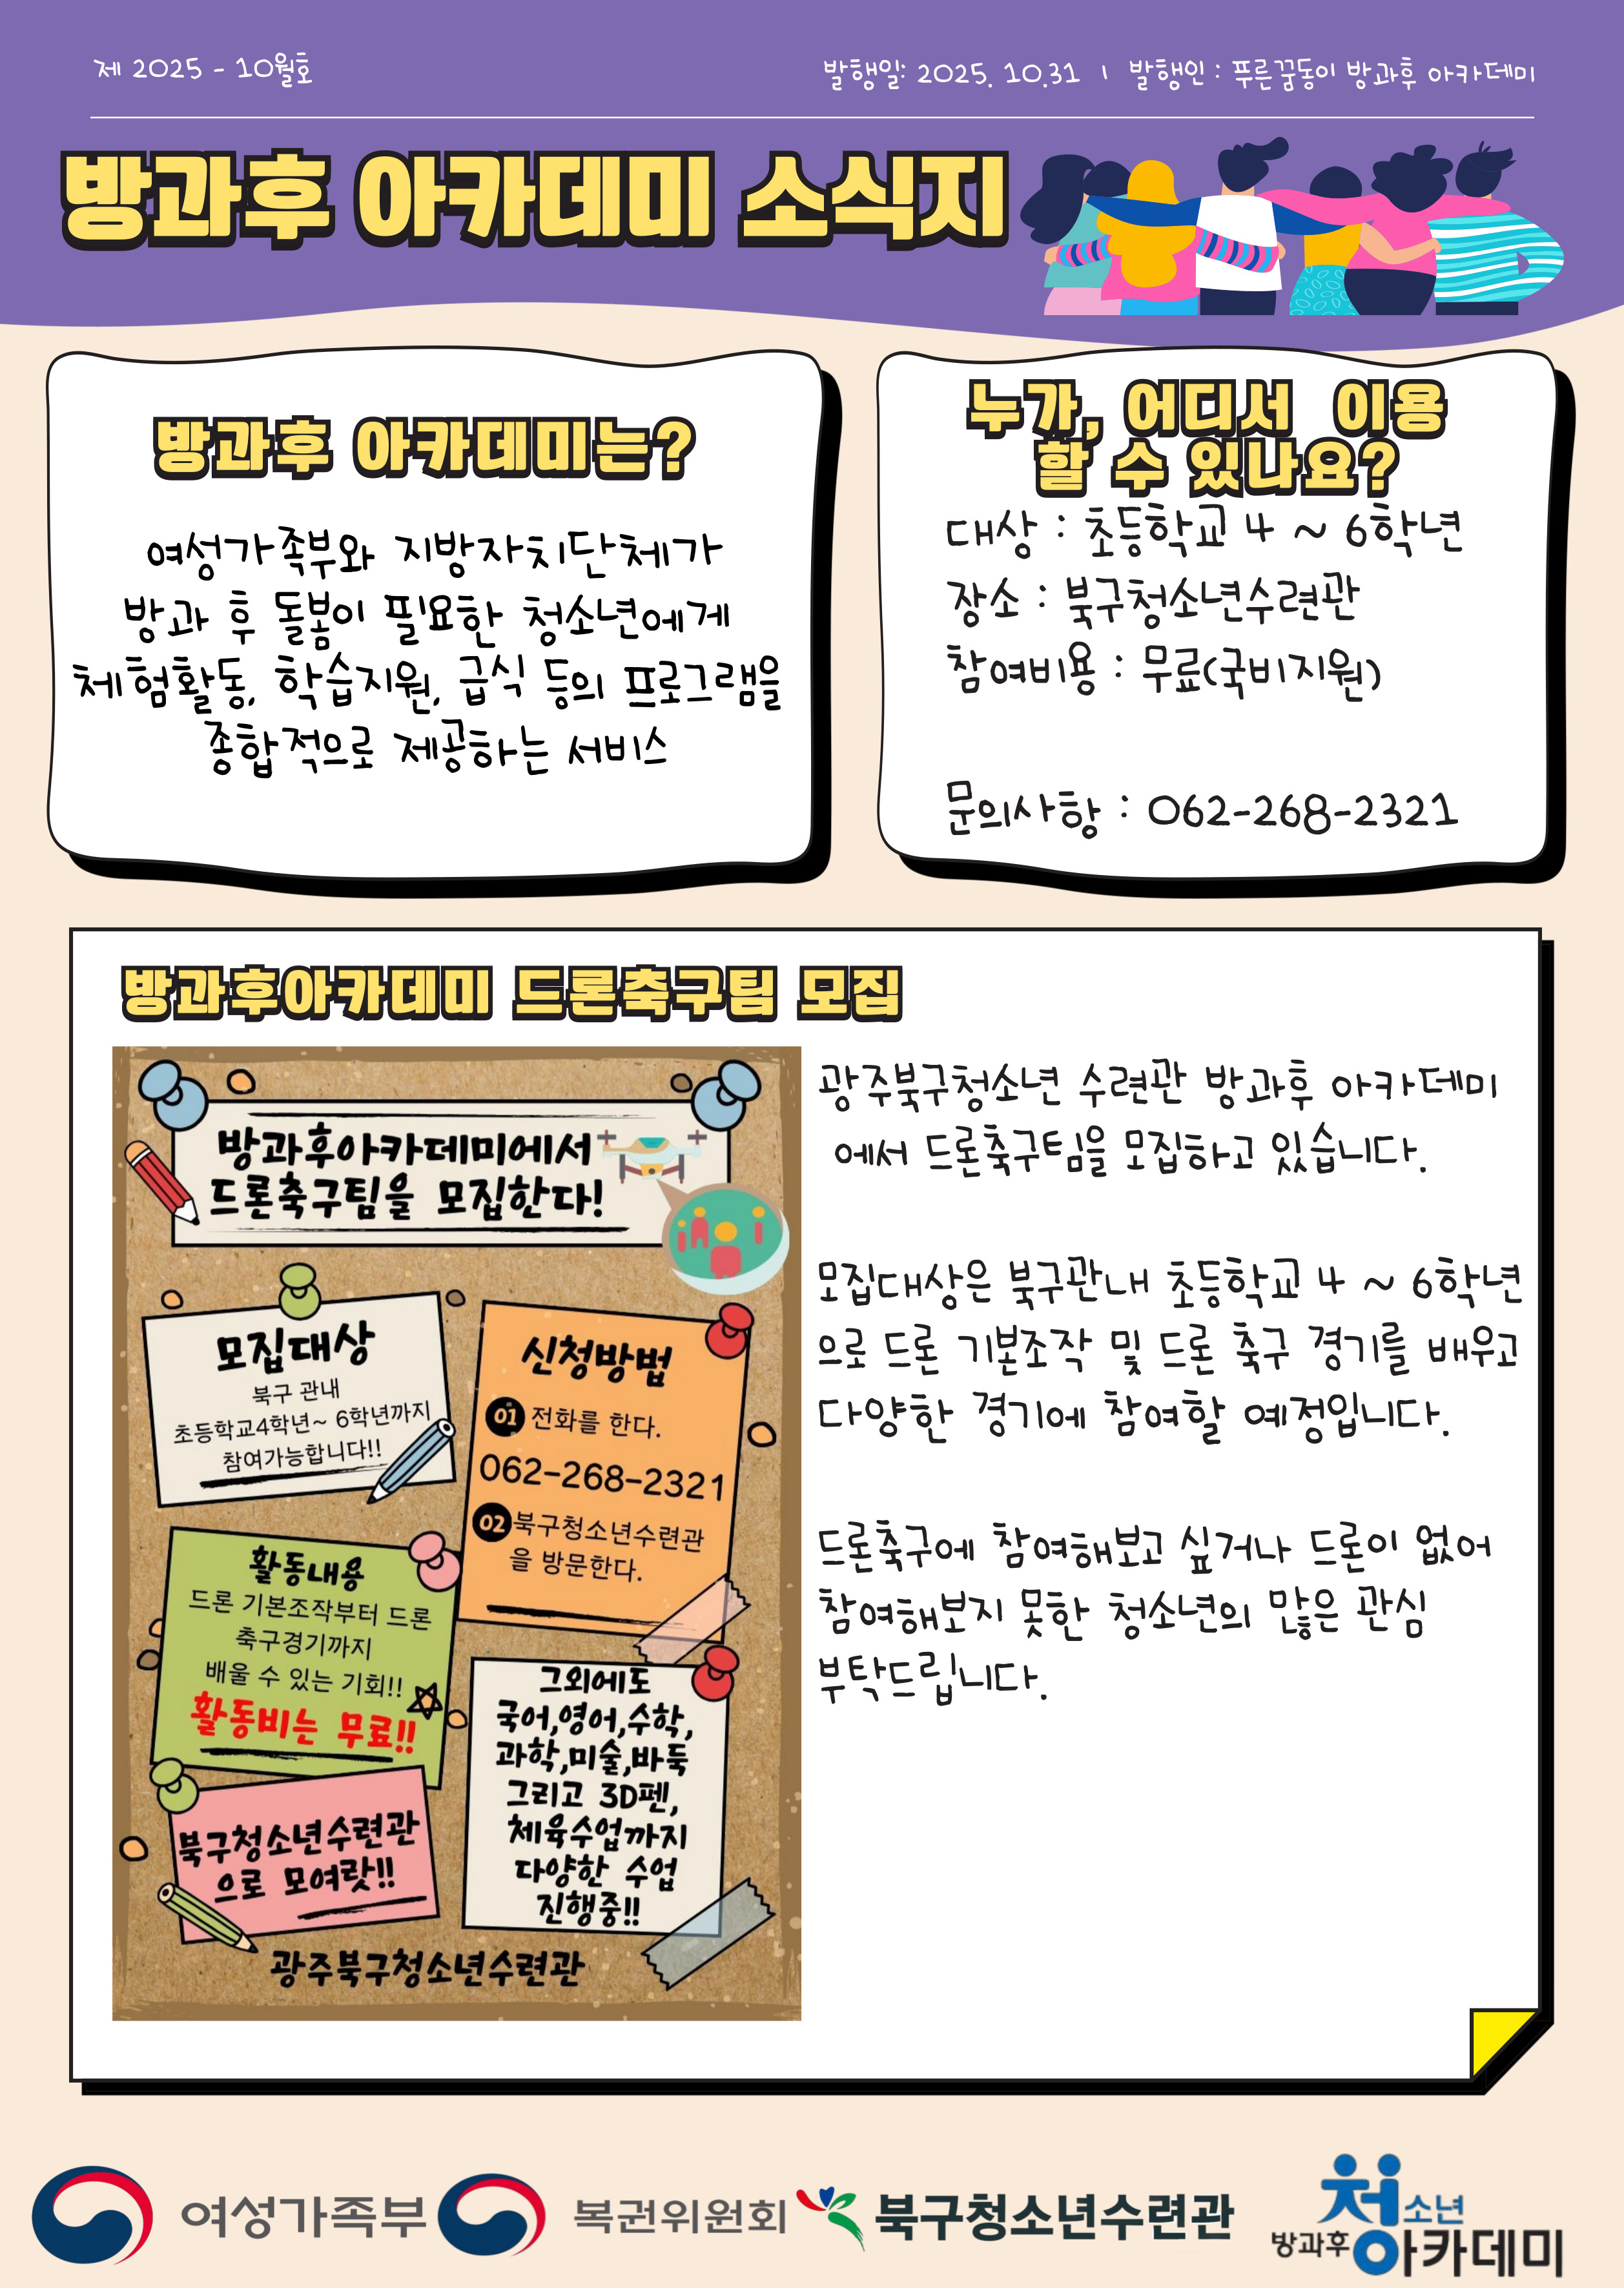 제 2025 - 10월호
발행일: 2025. 10.31 ㅣ 발행인 : 푸른꿈동이 방과후 아카데미
방과후 아카데미 소식지
방과후 아카데미는?
여성가족부와 지방자치단체가
방과 후 돌봄이 필요한 청소년에게
체험활동, 학습지원, 급식 등의 프로그램을
종합적으로 제공하는 서비스
누가, 어디서 이용
할 수 있나요?
대상 : 초등학교 4 ~ 6학년
장소 : 북구청소년수련관
참여비용 : 무료(국비지원)
문의사항 : 062-268-2321
방과후아카데미 드론축구팀 모집
방과후아카데미에서
드론축구팀을 모집한다!
모집대상
북구 관내
초등학교4학년~ 6학년까지
참여가능합니다!!
신청방법
01 전화를 한다.
062-268-2321
02 북구청소년수련관
을 방문한다.
활동내용
드론 기본조작부터 드론
축구경기까지
배울 수 있는 기회!!
활동비는 무료!!
그외에도
국어,영어,수학,
과학,미술,바둑
그리고 3D펜,
체육수업까지
다양한 수업
진행중!!
북구청소년수련관
으로 모여랏!!
광주북구청소년수련관
광주북구청소년 수련관 방과후 아카데미
에서 드론축구팀을 모집하고 있습니다.
모집대상은 북구관내 초등학교 4 ~ 6학년
으로 드론 기본조작 및 드론 축구 경기를 배우고
다양한 경기에 참여할 예정입니다.
드론축구에 참여해보고 싶거나 드론이 없어
참여해보지 못한 청소년의 많은 관심
부탁드립니다.
여성가족부
복권위원회
북구청소년수련관
청소년
방과후아카데미